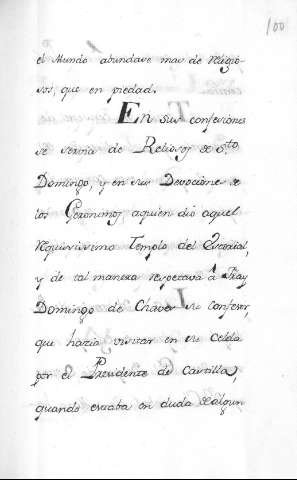 100
el Mundo abundase mas de Religio-
sos, que en piedad.
En sus confesiones
se servia de Reliosos de S.to
Domingo, y en sus Devociones de
los Geronimos aquien dio aquel
Riquissimo Templo del Escorial,
y de tal manera respectava â Fray
Domingo de Chaves su Confesor,
que hazia visitar en su Celda
por el Presidente de Castilla,
quando estaba en duda de algun